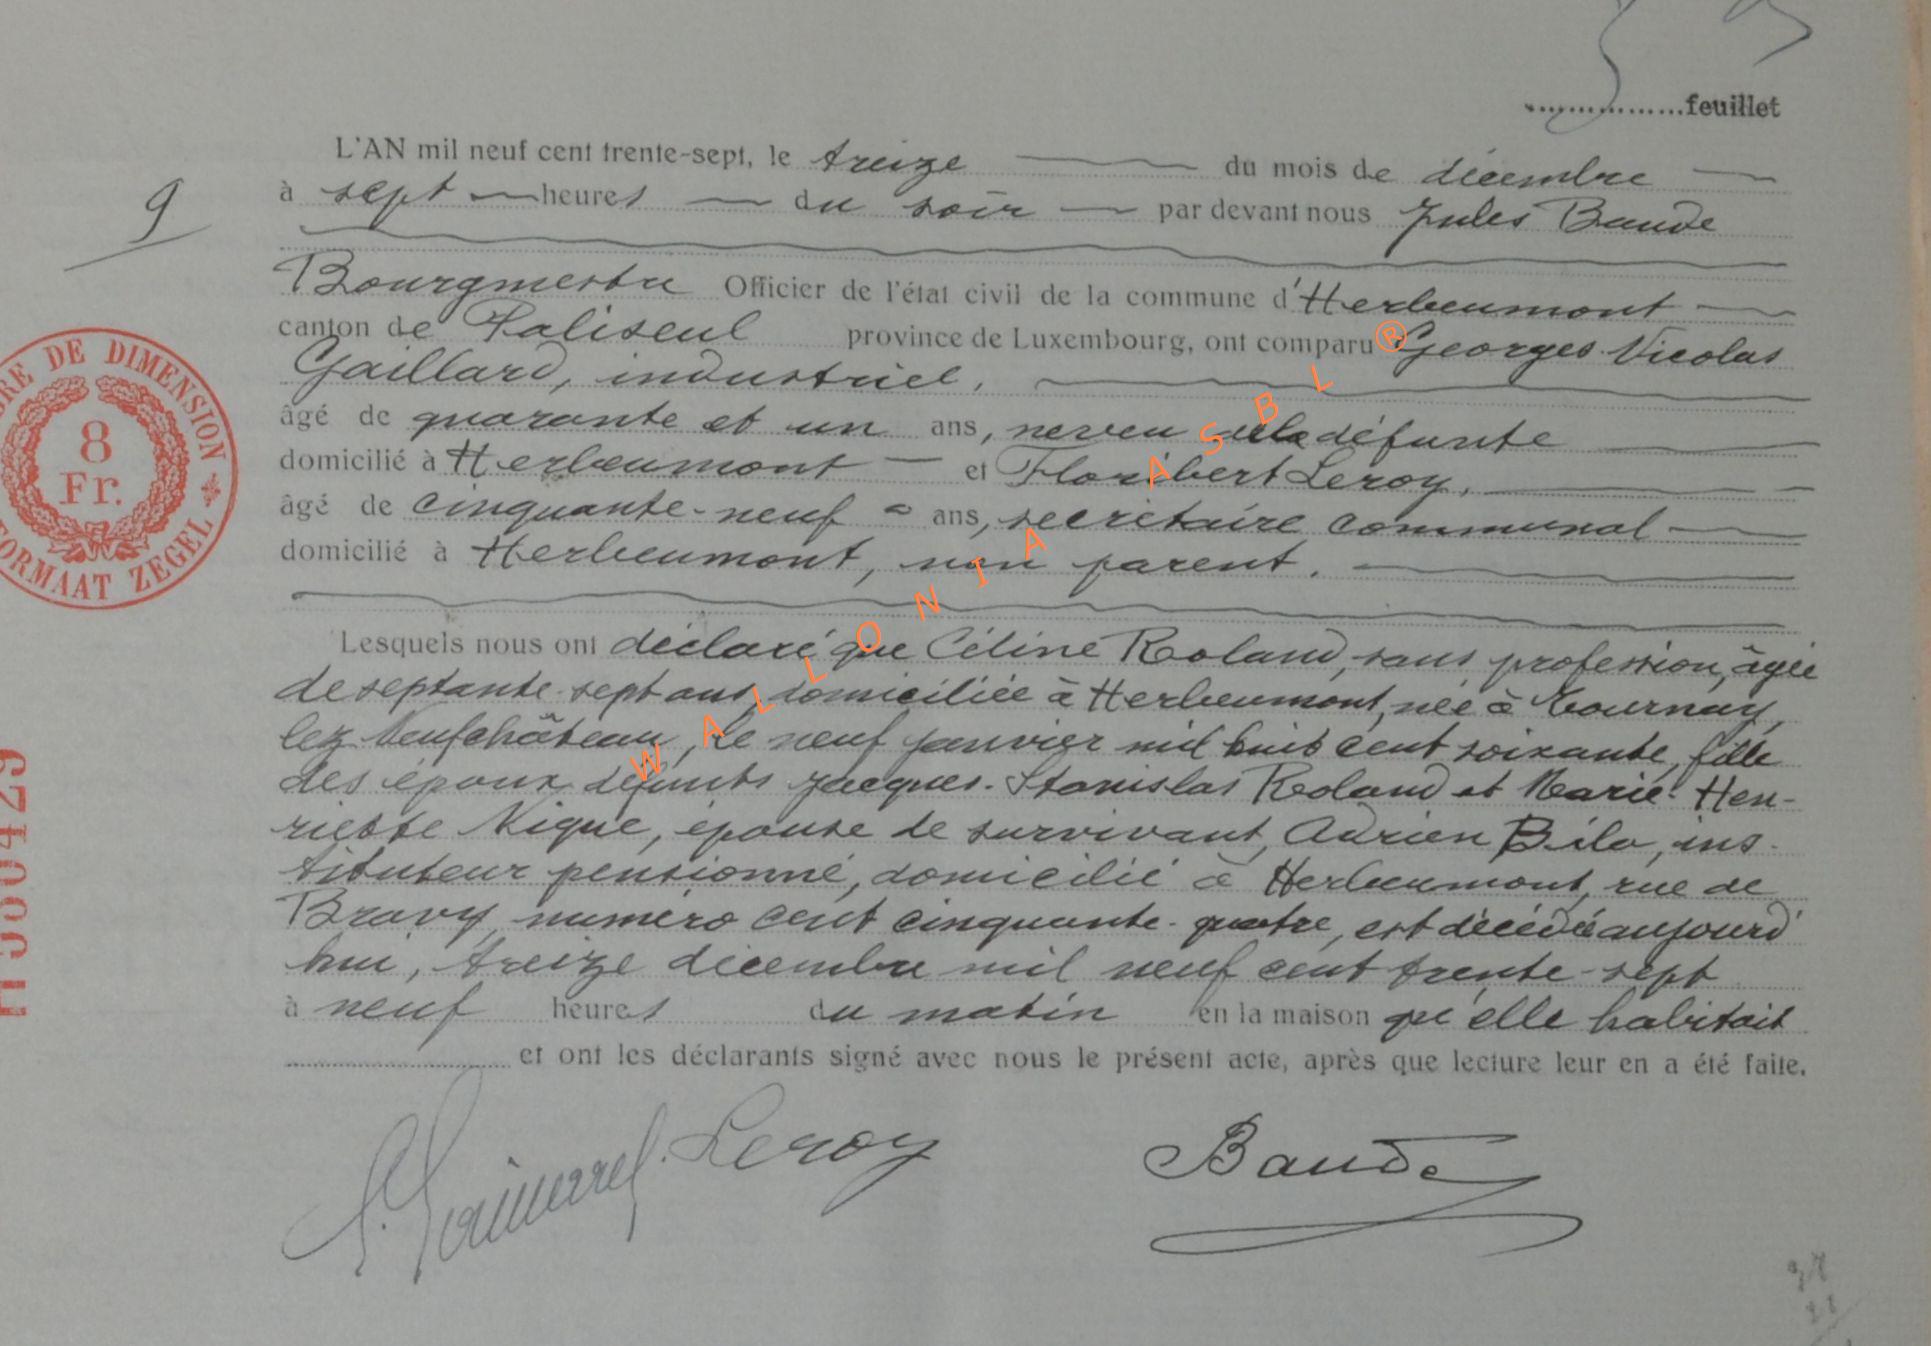 feuillet
L'AN mil neuf cent trente-sept, le treize du mois de décembre
9
à sept heures du soir par devant nous Jules Baude
Bourgmestre Officier de l'état civil de la commune d'Herbeumont
canton de Paliseul province de Luxembourg, ont comparu Georges Nicolas
Gaillard, industriel,
âgé de quarante et un ans, neveu de la défunte
domicilié à Herbeumont et Floribert Leroy,
âgé de cinquante-neuf ans, secrétaire communal
domicilié à Herbeumont, non parent.
Lesquels nous ont déclaré que Céline Roland, sans profession, âgée
de septante-sept ans, domiciliée à Herbeumont, née à Tournay,
lez Neufchâteau, le neuf janvier mil huit cent soixante, fille
des époux défunts Jacques-Stanislas Roland et Marie-Hen-
riette Nique, épouse de survivant, Adrien Bilo, ins-
tituteur pensionné, domicilié à Herbeumont, rue de
Bravy, numéro cent cinquante-quatre, est décédée aujourd'
hui, treize décembre mil neuf cent trente-sept
à neuf heures du matin en la maison qu'elle habitait
et ont les déclarants signé avec nous le présent acte, après que lecture leur en a été faite.
Leroy Baude
TIMBRE DE DIMENSION
8
Fr.
FORMAAT ZEGEL
WALLONIA ASBL ®